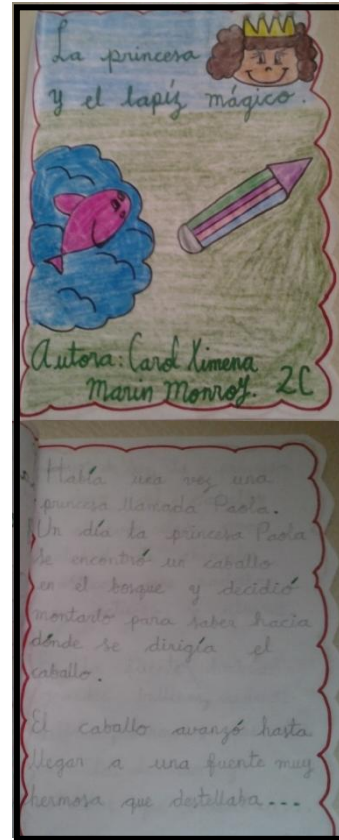 La princesa
y el lapíz mágico.
Autora: Carol Ximena
Marin Monroy. 2C
Había una vez una
princesa llamada Paola.
Un día la princesa Paola
se encontró un caballo
en el bosque y decidió
montarlo para saber hacia
dónde se dirigía el
caballo.
El caballo avanzó hasta
llegar a una fuente muy
hermosa que destellaba...